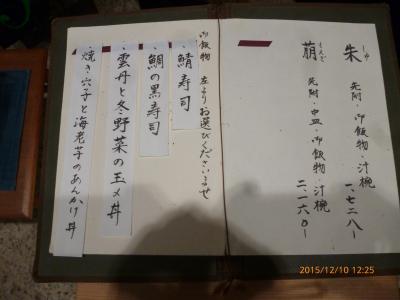 朱 しゅ
先附・御飯物・汁椀
一、七二八ー
萌
先附・中皿・御飯物・汁椀
二、一六〇ー
御飯物 左よりお選びくださいませ
・鯖寿司
・鯛の黒寿司
・雲丹と冬野菜の玉〆丼
・焼き穴子と海老芋のあんかけ丼
2015/12/10 12:25